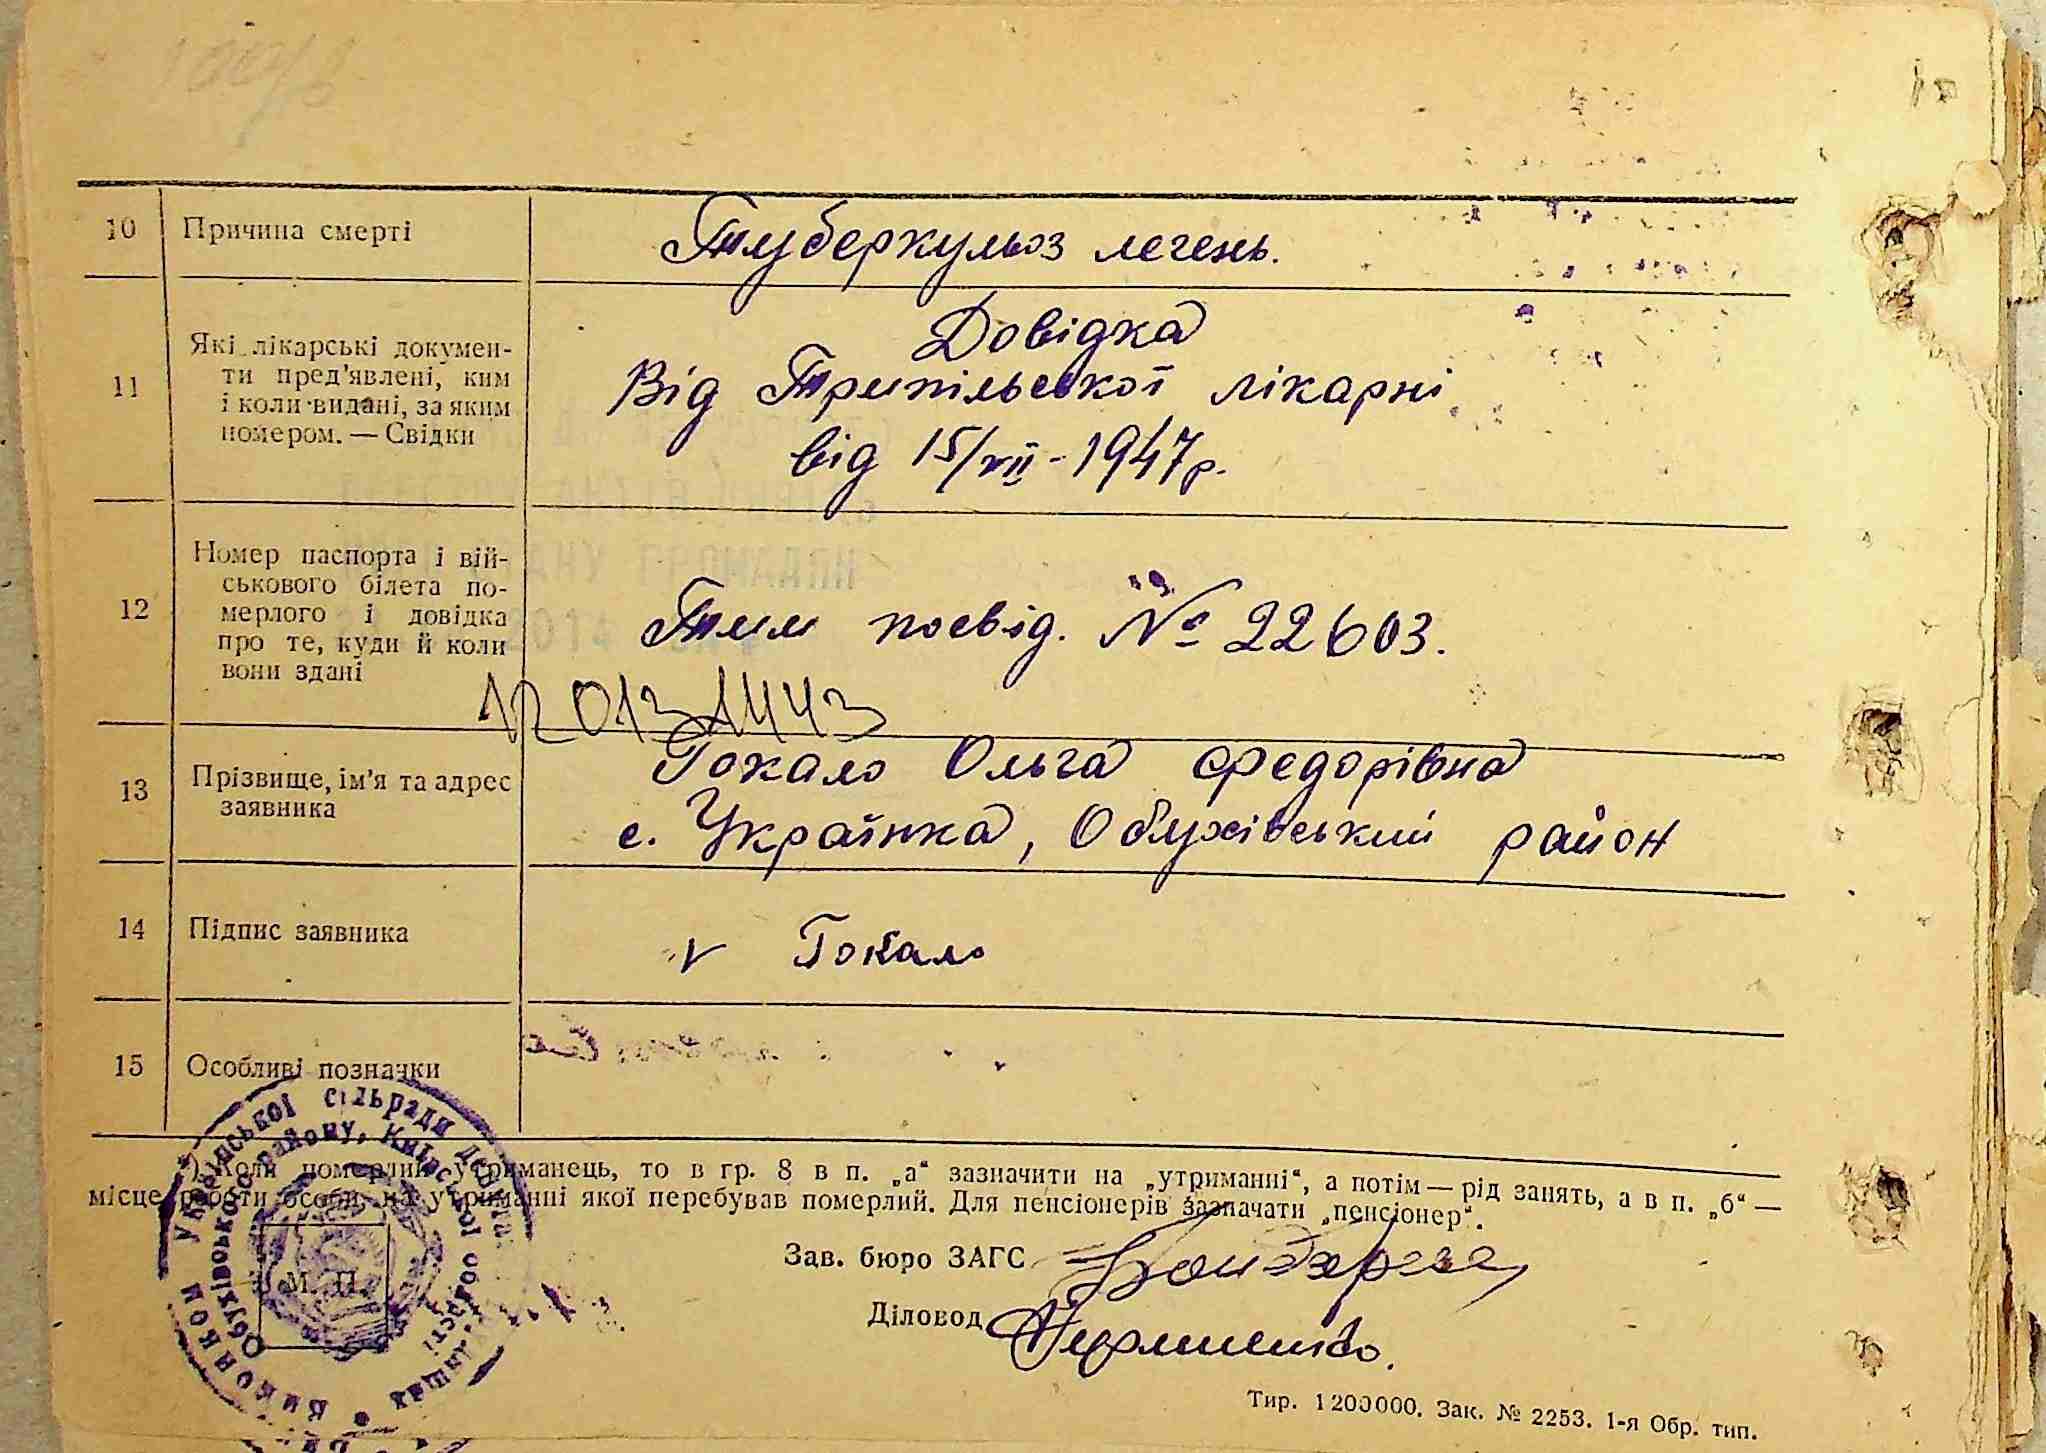 10 Причина смерті Туберкульоз легень.
Які лікарські докумен- Довідка
11 ти пред'явлені, ким Від Трипільської лікарні
і коли видані, за яким
номером. — Свідки від 15/VII - 1947 р.
Номер паспорта і вій-
ськового білета по-
12 мерлого і довідка Тим посвід. № 22603.
про те, куди й коли
вони здані
12013 1443
13 Прізвище, ім'я та адрес Гокало Ольга Федорівна
заявника с. Українка, Обухівський район
14 Підпис заявника v Гокало
15 Особливі позначки
*) Коли померлий утриманець, то в гр. 8 в п. „а“ зазначити на „утриманні“, а потім — рід занять, а в п. „б“ —
місце роботи особи, на утриманні якої перебував померлий. Для пенсіонерів зазначати „пенсіонер“.
Зав. бюро ЗАГС
Діловод
М. П.
Виконком Української сільради депутатів трудящих
Обухівського району, Київської області
Тир. 1200000. Зак. № 2253. 1-я Обр. тип.